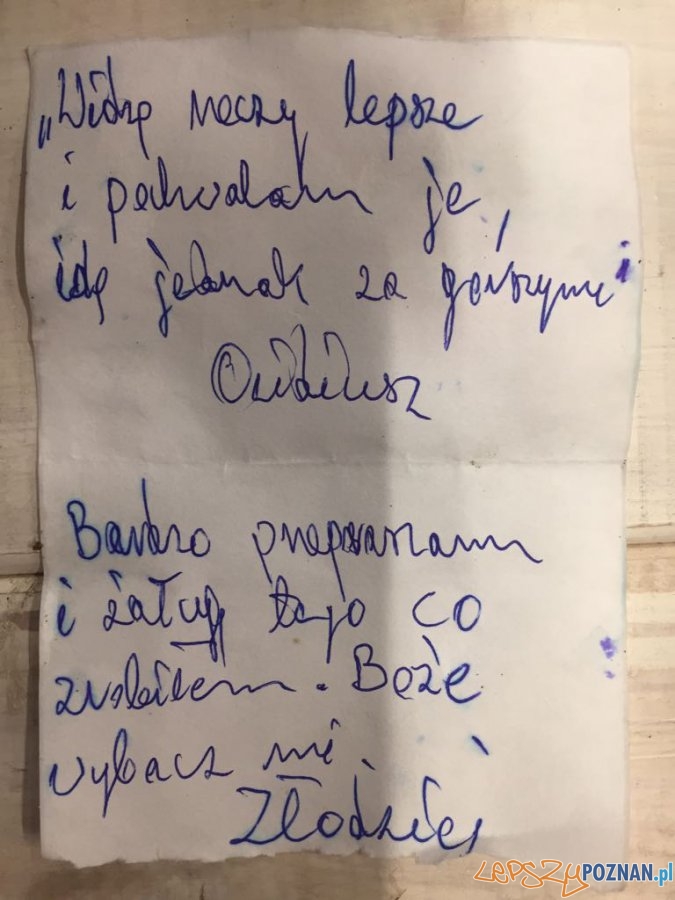 „Widzę rzeczy lepsze
i pochwalam je,
idę jednak za gorszymi"
Owidiusz
Bardzo przepraszam
i żałuję tego co
zrobiłem. Boże
wybacz mi.
Złodziej
LEPSZYPOZNAN.pl